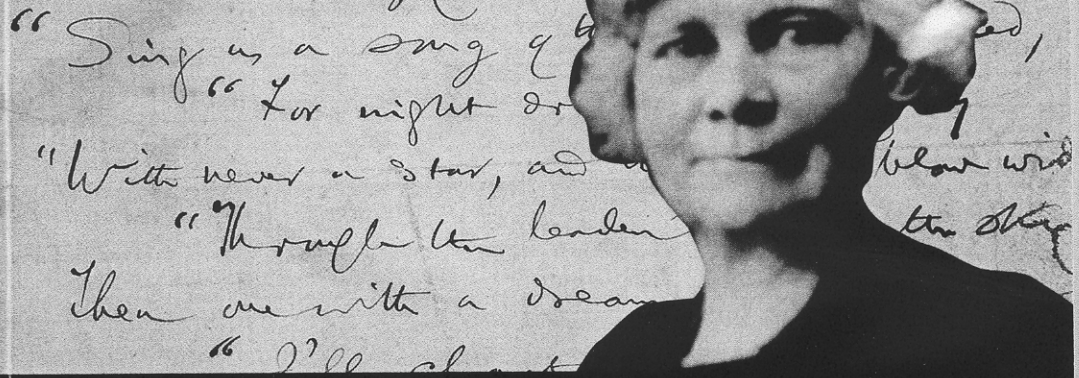 "Sing us a song
"For night
"With never a star, and blow
"Through the leaden the sky
Then one with a dream
"I'll